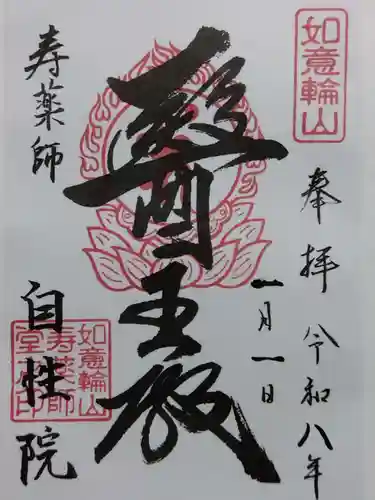 如意輪山
奉拝 令和八年
一月一日
醫王殿
寿薬師
如意輪山
寿薬師
自性院